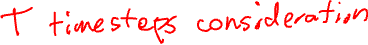 T timesteps consideration